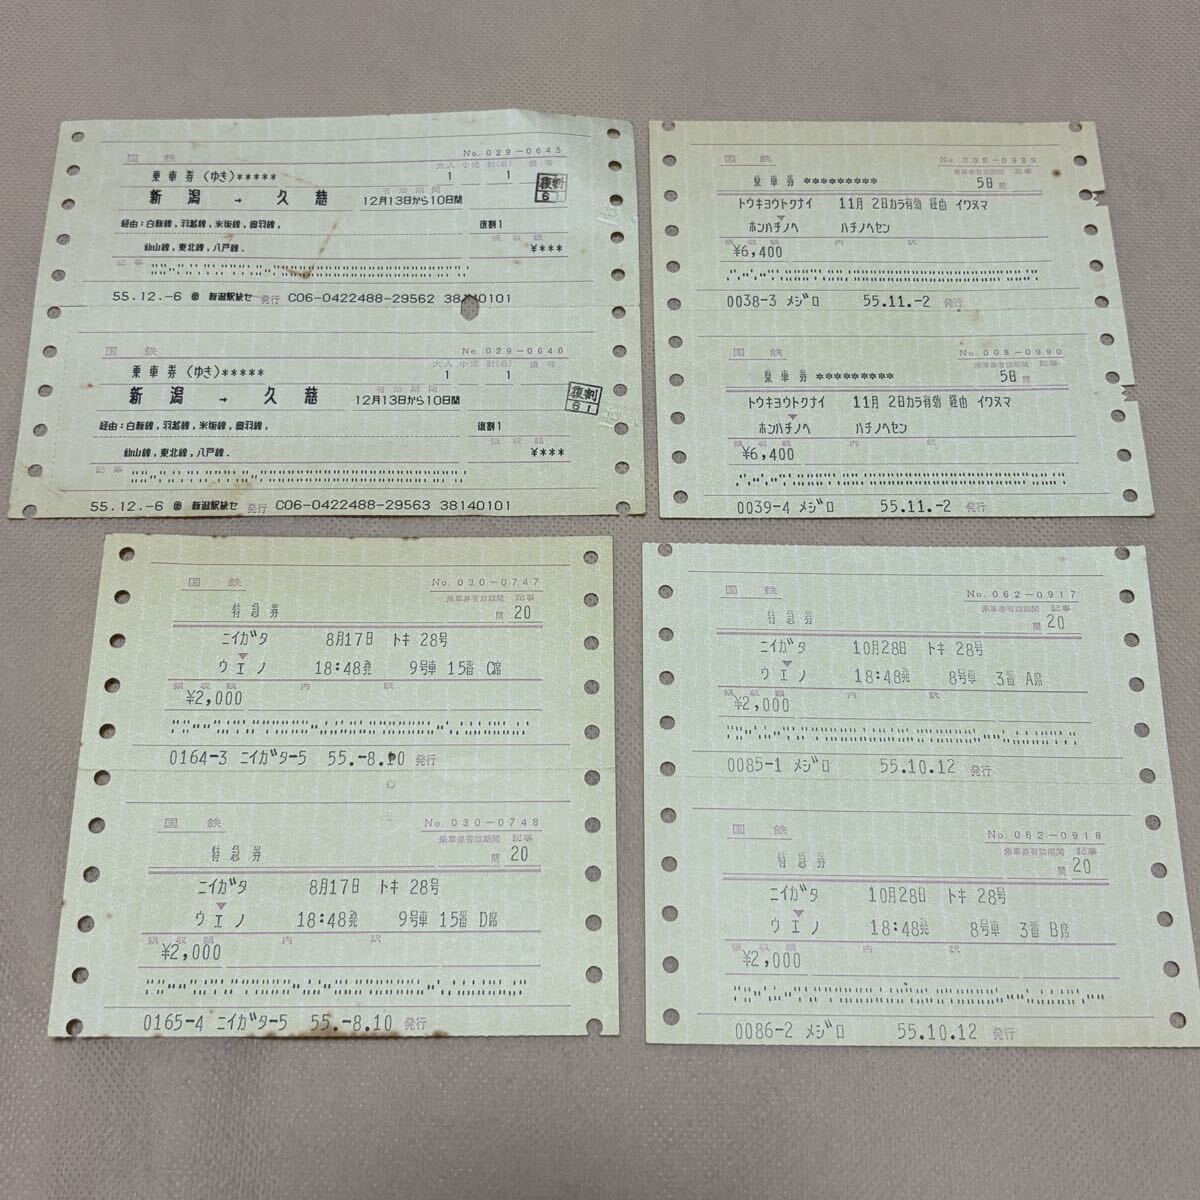 国鉄
No. 029-0645
大人 小児 計(名) 備考
乗車券(ゆき)*****
1 1
復割
6 1
新潟 → 久慈
有効期間
12月13日から10日間
経由:白新線,羽越線,米坂線,奥羽線,
復割1
仙山線,東北線,八戸線.
領収額
¥***
記事
55.12.-6 新潟駅旅セ 発行 C06-0422488-29562 38140101
国鉄
No. 029-0646
大人 小児 計(名) 備考
乗車券(ゆき)*****
1 1
復割
6 1
新潟 → 久慈
有効期間
12月13日から10日間
経由:白新線,羽越線,米坂線,奥羽線,
復割1
仙山線,東北線,八戸線.
領収額
¥***
記事
55.12.-6 新潟駅旅セ 発行 C06-0422488-29563 38140101
国鉄
No. 008-0989
乗車券有効期間 記事
乗車券 *********
5日間
トウキヨウトクナイ 11月 2日カラ有効 経由 イワヌマ
ホンハチノヘ ハチノヘセン
領収額 内訳
¥6,400
0038-3 メジロ 55.11.-2 発行
国鉄
No. 008-0990
乗車券有効期間 記事
乗車券 *********
5日間
トウキヨウトクナイ 11月 2日カラ有効 経由 イワヌマ
ホンハチノヘ ハチノヘセン
領収額 内訳
¥6,400
0039-4 メジロ 55.11.-2 発行
国鉄
No. 030-0747
乗車券有効期間 記事
特急券
間 20
ニイガタ 8月17日 トキ 28号
ウエノ 18:48発 9号車 15番 C席
領収額 内訳
¥2,000
0164-3 ニイガタ-5 55.-8.10 発行
国鉄
No. 030-0748
乗車券有効期間 記事
特急券
間 20
ニイガタ 8月17日 トキ 28号
ウエノ 18:48発 9号車 15番 D席
領収額 内訳
¥2,000
0165-4 ニイガタ-5 55.-8.10 発行
国鉄
No. 062-0917
乗車券有効期間 記事
特急券
間 20
ニイガタ 10月28日 トキ 28号
ウエノ 18:48発 8号車 3番 A席
領収額 内訳
¥2,000
0085-1 メジロ 55.10.12 発行
国鉄
No. 062-0918
乗車券有効期間 記事
特急券
間 20
ニイガタ 10月28日 トキ 28号
ウエノ 18:48発 8号車 3番 B席
領収額 内訳
¥2,000
0086-2 メジロ 55.10.12 発行